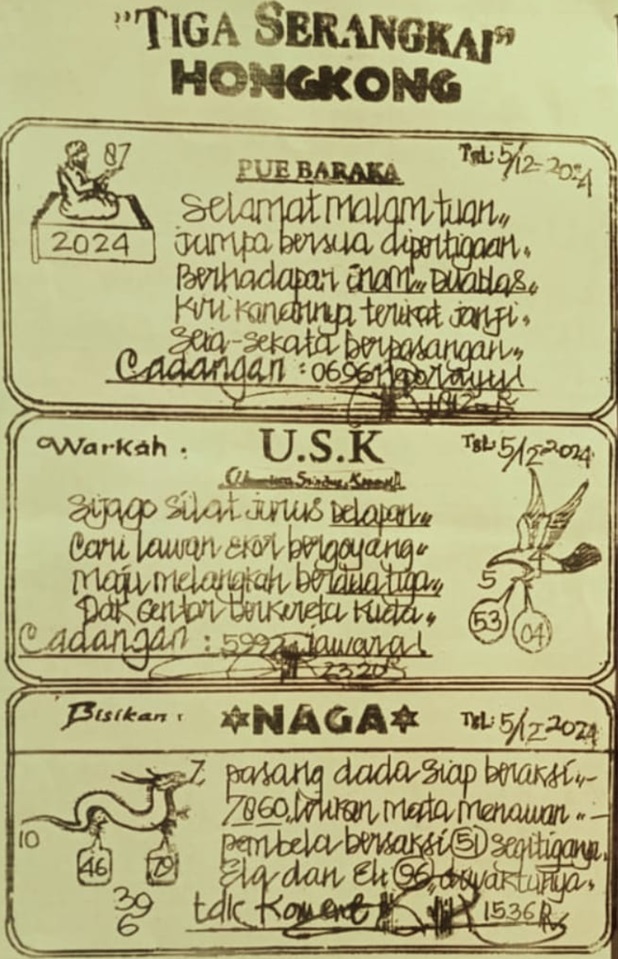 "TIGA SERANGKAI"
HONGKONG
87
2024
PUE BARAKA
TGL: 5/12-2024
Selamat malam tuan,,
jumpa bersua dipertigaan,
Berhadapan Enam,, Duablas,,
Kiri kanannya terikat janji,
Seia-sekata berpasangan,,
Cadangan : 0696
Warkah :
U.S.K
TGL: 5/12-2024
Sijago Silat jurus Delapan,,
Cari lawan Ekor bergoyang,,
Maju melangkah berdua tiga,,
Dak Gentar berkereta Kuda,,
Cadangan : 5992 jawara
2320
5
53
04
Bisikan :
NAGA
TGL: 5/12-2024
7
10
46
79
39
6
pasang dada siap beraksi,,-
7860, mata menawan,,-
pembela bersaksi (51) segitiganya,
Elq dan Eli (96),,
tdk Koment
1536 R